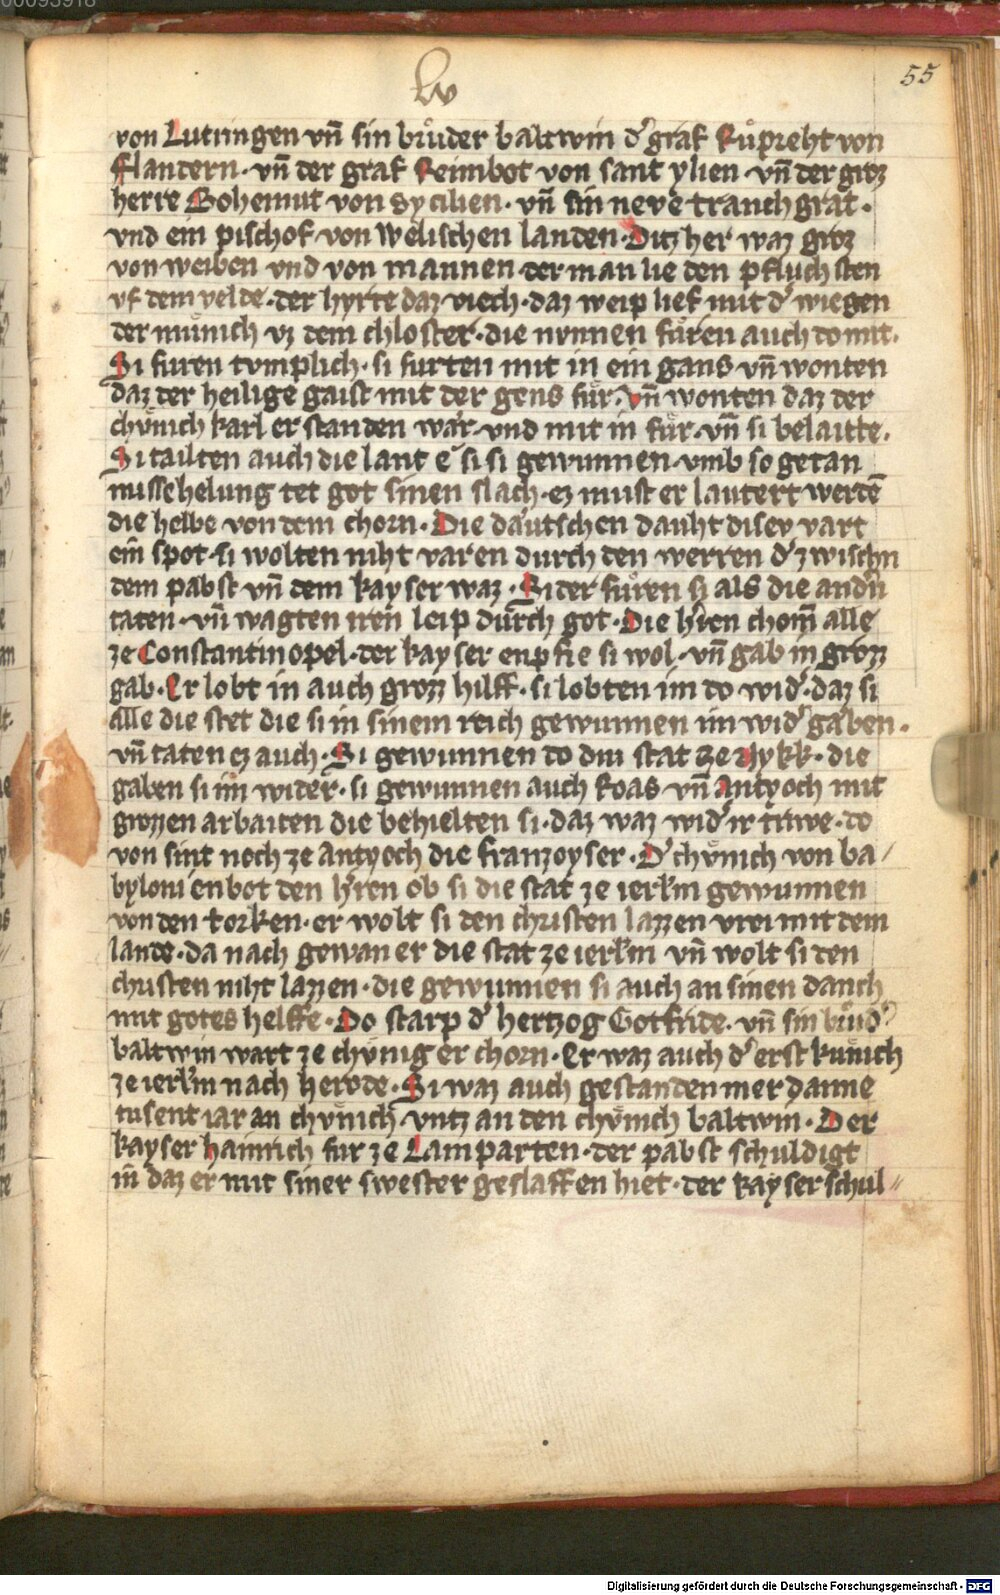 00093918
lv
55
von Lutringen vn̄ sin brůder baltwin d' graf Růpreht von
flandern · vn̄ der graf Reimbot von sant ylien · vn̄ der grozz
herre Bohemut von Sycilien · vn̄ sin neve tranchgrat ·
vnd ein pischof von welischen landen · Ditz her waz groz
von weiben vnd von mannen · der man lie den pfluch sten
vf dem velde · der hyrte daz viech · daz weip lief mit d' wiegen
der mu̇nich vz dem chloster · die nvnnen fůren auch do mit ·
Si furen tvmplich · si furten mit in ein gans vn̄ wonten
daz der heilige gaist mit der gens fůr · vn̄ wonten daz der
chůnich karl erstanden wär · vnd mit in fůr · vn̄ si belaitte ·
Si tailten auch die lant e si si gewunnen · vmb so getan
missehelung tet got sinen slach · ez must er lautert werdē
die helbe von dem chorn · Die däutschen dauht disev vart
ein spot · si wolten niht varen durch den werren d' zwischn
dem pabst vn̄ dem kayser waz · Sider fůren si als die andn̄
taten · vn̄ wagten iren leip durch got · Die hr̄en chom̄ alle
ze Constantinopel · der kayser enpfie si wol · vn̄ gab in grozz
gab · Er lobt in auch grozz hilff · si lobten im do wid' · daz si
alle die stet die si in sinem reich gewunnen im wid' gäben ·
vn̄ taten ez auch · Si gewunnen do div stat ze Nykk · die
gaben si im wider · si gewunnen auch koas vn̄ Antyoch mit
grozzen arbaiten die behielten si · daz waz wid' ir triwe · do
von sint noch ze Antyoch die franzoyser · D' chůnich von ba/
byloni enbot den hr̄en ob si die stat ze ierl'm gewunnen
von den torken · er wolt si den christen lazzen vrei mit dem
lande · da nach gewan er die stat ze ierl'm vn̄ wolt si den
christen niht lazzen · die gewunnen si auch an sinen danch
mit gotes helffe · Do starp d' hertzog Gotfride · vn̄ sin brůd'
baltwin wart ze chůnig erchorn · Er waz auch d' erst kůnich
ze ierl'm nach herode · Si waz auch gestanden mer danne
tusent iar an chůnich vntz an den chůnich baltwin · Der
kayser hainrich fur ze Lamparten · der pabst schuldigt
in̄ daz er mit siner swester geslaffen hiet · der kayser schul//
Digitalisierung gefördert durch die Deutsche Forschungsgemeinschaft - DFG